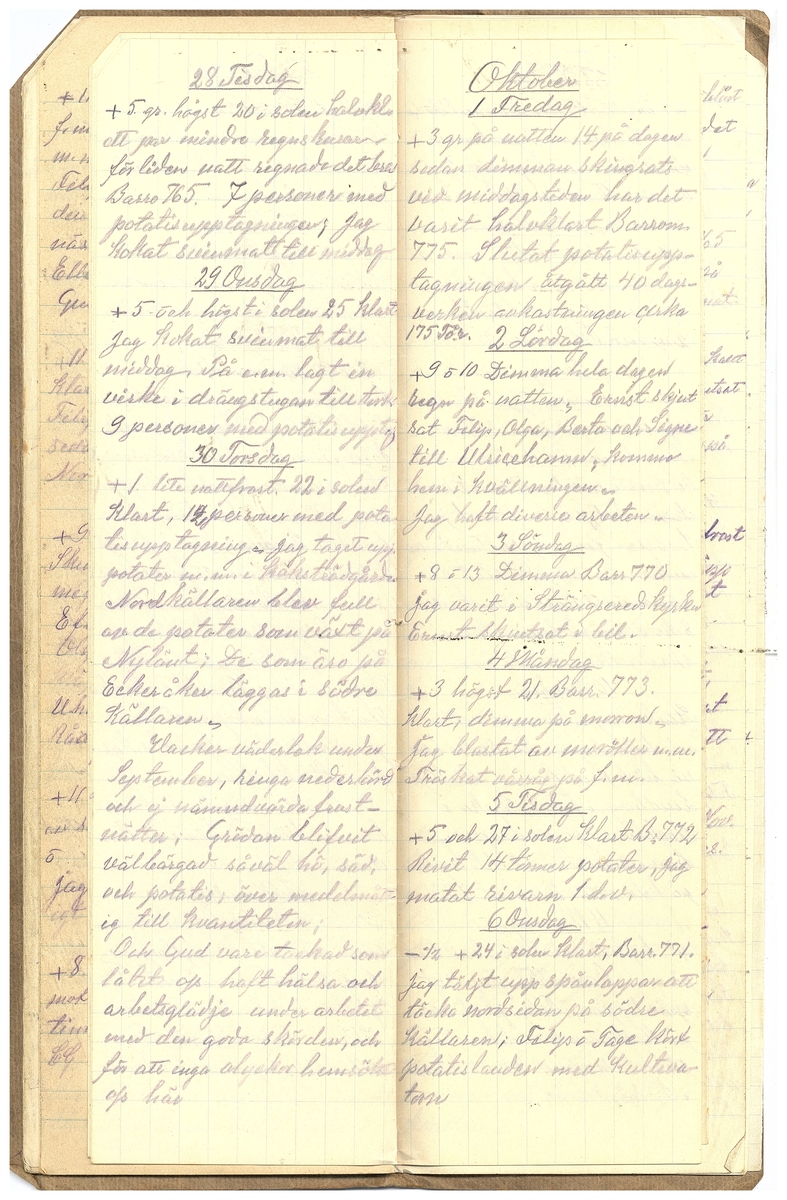 28 Tisdag
+5 gr. högst 20 i solen halvkla
ett par mindre regnskurar
förliden natt regnade det bra
Barro 765. 7 personer med
potatisupptagningen; jag
kokat svinmat till middag
29 Onsdag
+5 och högst i solen 25 klart
jag kokat svinmat till
middag. På e.m. lagt in
virke i drängstugan till tork
9 personer med potatisupptag
30 Torsdag
+1 lite nattfrost. 22 i solen
klart, 14 personer med pota
tisupptagning. jag taget upp
potater m.m. i köksträdgården
Nordkällaren blev full
av de potater som växt på
Nylänt; De som äro på
Eckeråker läggas i södre
Källaren
Vacker väderlek under
September, ringa nederbörd
och ej nämnvärda frost-
nätter; Grödan blifvit
välbärgad såväl hö, säd,
och potatis, över medelmåt-
ig till kvantiteten;
Och Gud vare tackad som
låtit oss haft hälsa och
arbetsglädje under arbetet
med den goda skörden, och
för att inga olyckor hemsökt
oss här
Oktober
1 Fredag
+3 gr på natten 14 på dagen
sedan dimman skingrats
ved middagstiden har det
varit halvklart Barrom
775. Slutat potatisupp-
tagningen åtgått 40 dags-
verken avkastningen cirka
175 Tr.
2 Lördag
+9 o 10 Dimma hela dagen
regn på natten, Ernst skjut
sat Filip, Olga, Berta och Signe
till Ulricehamn, kommo
hem i kvällningen
Jag haft diverse arbeten
3 Söndag
+8 o 13 Dimma Barr 770
jag varit i Strängsereds kyrka
Ernst skjutsat i bil.
4 Måndag
+3 högst 21. Barr. 773.
klart, dimma på morron
jag blastat av morötter m.m.
Tröskat vårråg på f.m.
5 Tisdag
+5 och 27 i solen klart B. 772
Rivit 14 tönner potater, jag
matat rivarn 1 d.v.
6 Onsdag
-½ +24 i solen klart, Barr. 771.
jag täljt upp spånlappar att
täcka nordsidan på södre
källaren, Filip o Tage kört
potatislanden med kultiva
torn